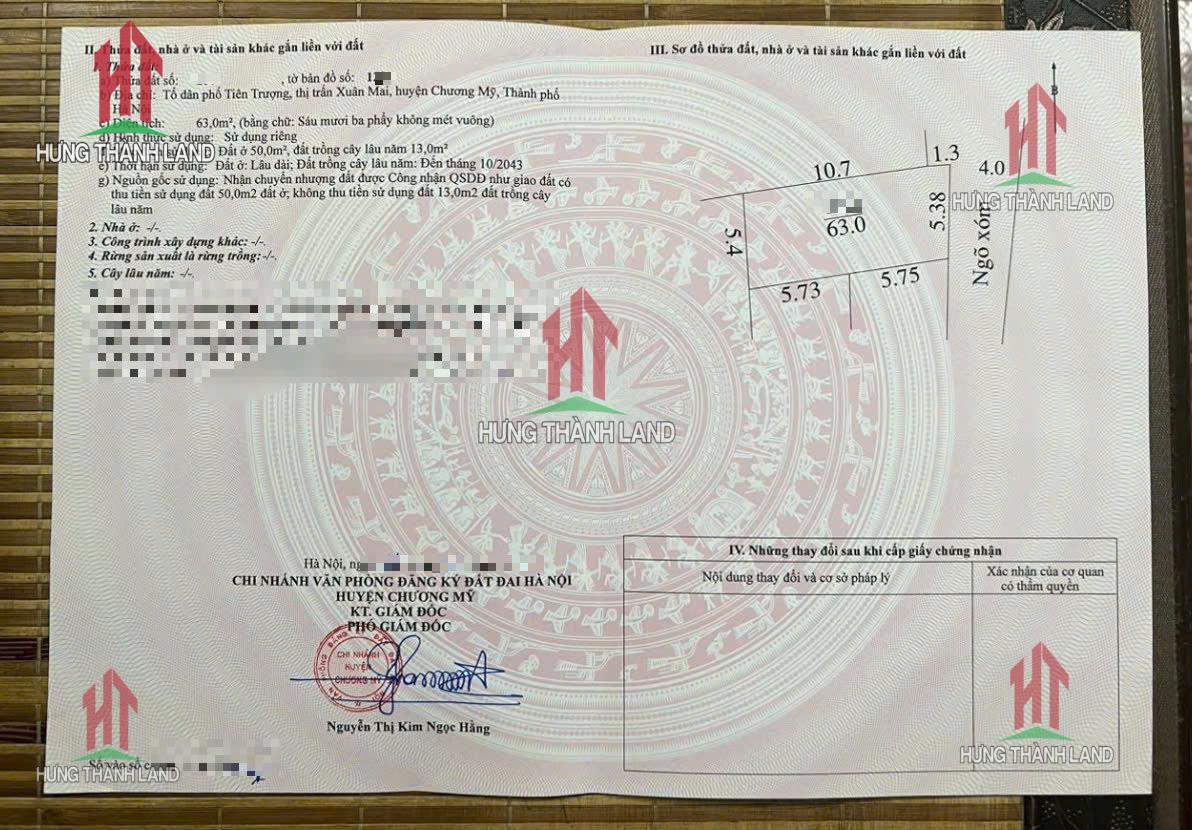 II. Thửa đất, nhà ở và tài sản khác gắn liền với đất
1. Thửa đất:
a) Thửa đất số: , tờ bản đồ số: 1
b) Địa chỉ: Tổ dân phố Tiên Trượng, thị trấn Xuân Mai, huyện Chương Mỹ, Thành phố
Hà Nội
c) Diện tích: 63,0m², (bằng chữ: Sáu mươi ba phẩy không mét vuông)
d) Hình thức sử dụng: Sử dụng riêng
sử dụng: Đất ở 50,0m², đất trồng cây lâu năm 13,0m²
e) Thời hạn sử dụng: Đất ở: Lâu dài; Đất trồng cây lâu năm: Đến tháng 10/2043
g) Nguồn gốc sử dụng: Nhận chuyển nhượng đất được Công nhận QSDĐ như giao đất có
thu tiền sử dụng đất 50,0m2 đất ở; không thu tiền sử dụng đất 13,0m2 đất trồng cây
lâu năm
2. Nhà ở: -/-.
3. Công trình xây dựng khác: -/-.
4. Rừng sản xuất là rừng trồng: -/-.
5. Cây lâu năm: -/-.
Hà Nội, ng
CHI NHÁNH VĂN PHÒNG ĐĂNG KÝ ĐẤT ĐAI HÀ NỘI
HUYỆN CHƯƠNG MỸ
KT. GIÁM ĐỐC
PHÓ GIÁM ĐỐC
CHI NHÁNH
HUYỆN
CHƯƠNG MỸ
Nguyễn Thị Kim Ngọc Hằng
Số vào sổ c
III. Sơ đồ thửa đất, nhà ở và tài sản khác gắn liền với đất
B
10.7
1.3
4.0
63.0
5.4
5.38
5.73
5.75
Ngõ xóm
IV. Những thay đổi sau khi cấp giấy chứng nhận
Nội dung thay đổi và cơ sở pháp lý
Xác nhận của cơ quan
có thẩm quyền
HƯNG THÀNH LAND
HƯNG THÀNH LAND
HƯNG THÀNH LAND
HƯNG THÀNH LAND
HƯNG THÀNH LAND